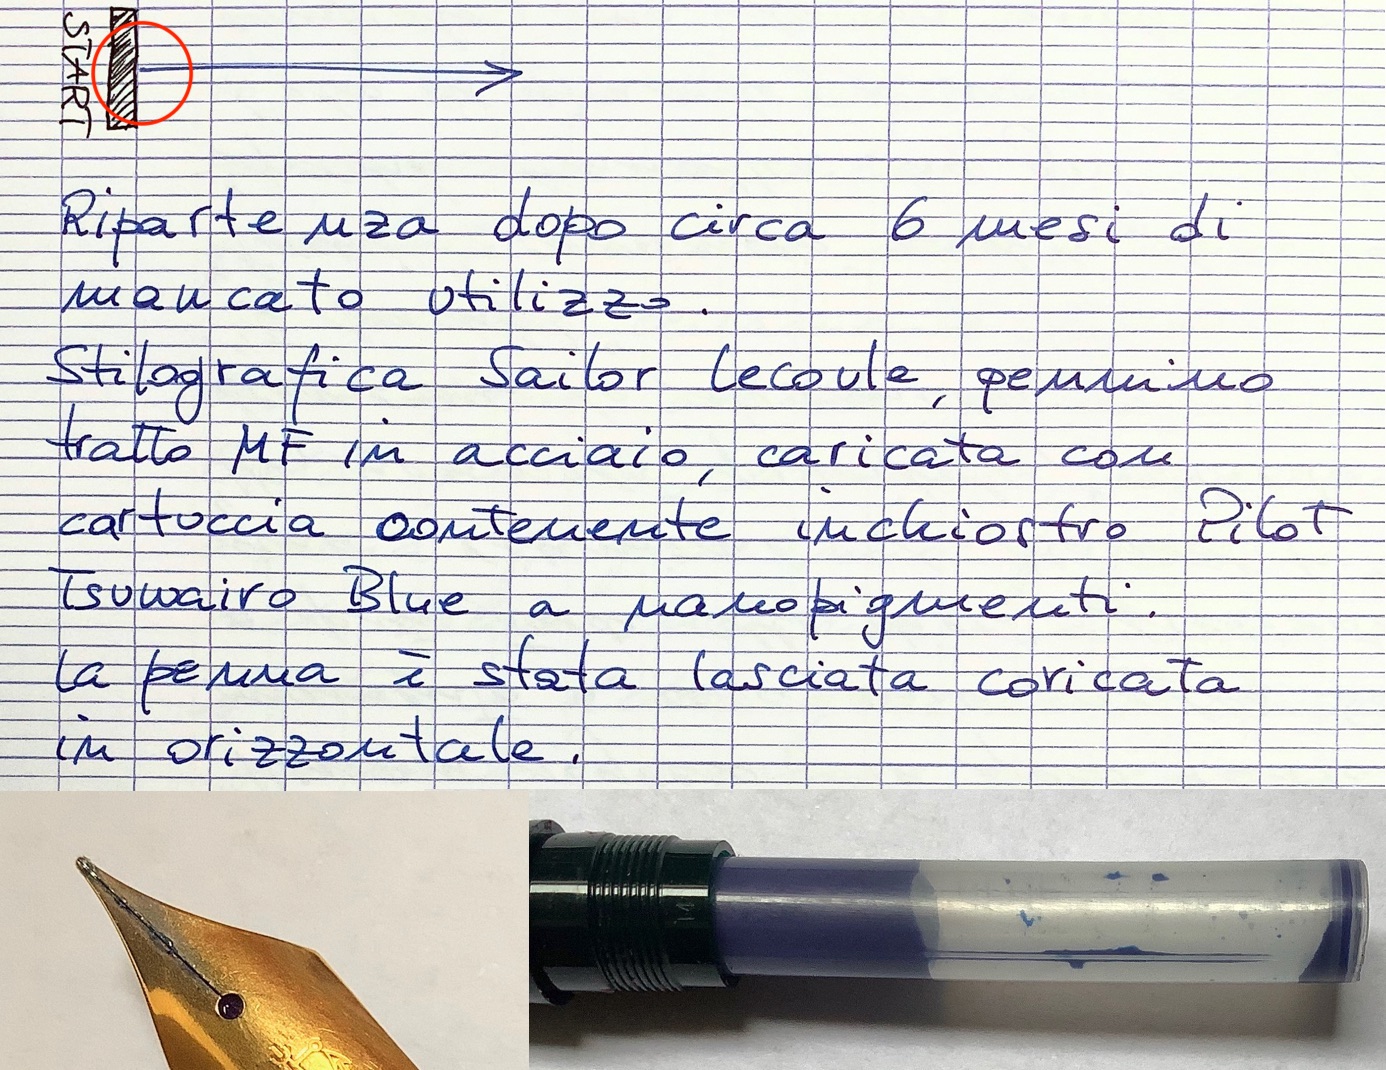 START
Ripartenza dopo circa 6 mesi di
mancato utilizzo.
Stilografica Sailor Lecoule, pennino
tratto MF in acciaio, caricata con
cartuccia contenente inchiostro Pilot
Tsuwairo Blue a nanopigmenti.
La penna è stata lasciata coricata
in orizzontale.